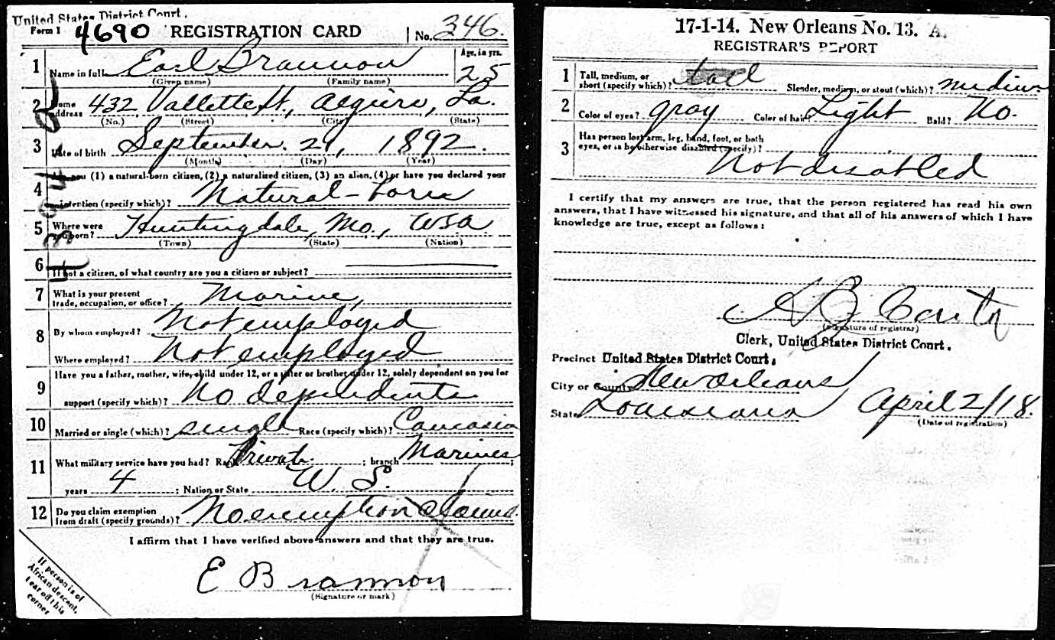 United States District Court.
Form 1 4690 REGISTRATION CARD No. 346.
1 Name in full Earl Brannon Age, in yrs. 25
(Given name) (Family name)
2 Home address 432 Vallette St, Algiers, La.
(No.) (Street) (City) (State)
3 Date of birth September. 29, 1892.
(Month) (Day) (Year)
4 Are you (1) a natural-born citizen, (2) a naturalized citizen, (3) an alien, (4) or have you declared your
intention (specify which)? Natural-born
5 Where were you born? Huntingdale, Mo., USA
(Town) (State) (Nation)
6 If not a citizen, of what country are you a citizen or subject?
7 What is your present trade, occupation, or office? Marine,
8 By whom employed? Not employed
Where employed? Not employed
9 Have you a father, mother, wife, child under 12, or a sister or brother under 12, solely dependent on you for
support (specify which)? No dependents
10 Married or single (which)? single Race (specify which)? Caucasian
11 What military service have you had? Rank Private ; branch Marines ;
years 4 ; Nation or State U. S.
12 Do you claim exemption from draft (specify grounds)? No exemption claimed.
I affirm that I have verified above answers and that they are true.
E Brannon
(Signature or mark)
If person is of
African descent,
tear off this
corner
17-1-14. New Orleans No. 13. A.
REGISTRAR'S REPORT
1 Tall, medium, or short (specify which)? tall Slender, medium, or stout (which)? medium
2 Color of eyes? gray Color of hair? Light Bald? No.
3 Has person lost arm, leg, hand, foot, or both
eyes, or is he otherwise disabled (specify)?
Not disabled
I certify that my answers are true, that the person registered has read his own
answers, that I have witnessed his signature, and that all of his answers of which I have
knowledge are true, except as follows:
(Signature of registrar)
Clerk, United States District Court.
Precinct United States District Court.
City or County New Orleans
State Louisiana April 2/18.
(Date of registration)